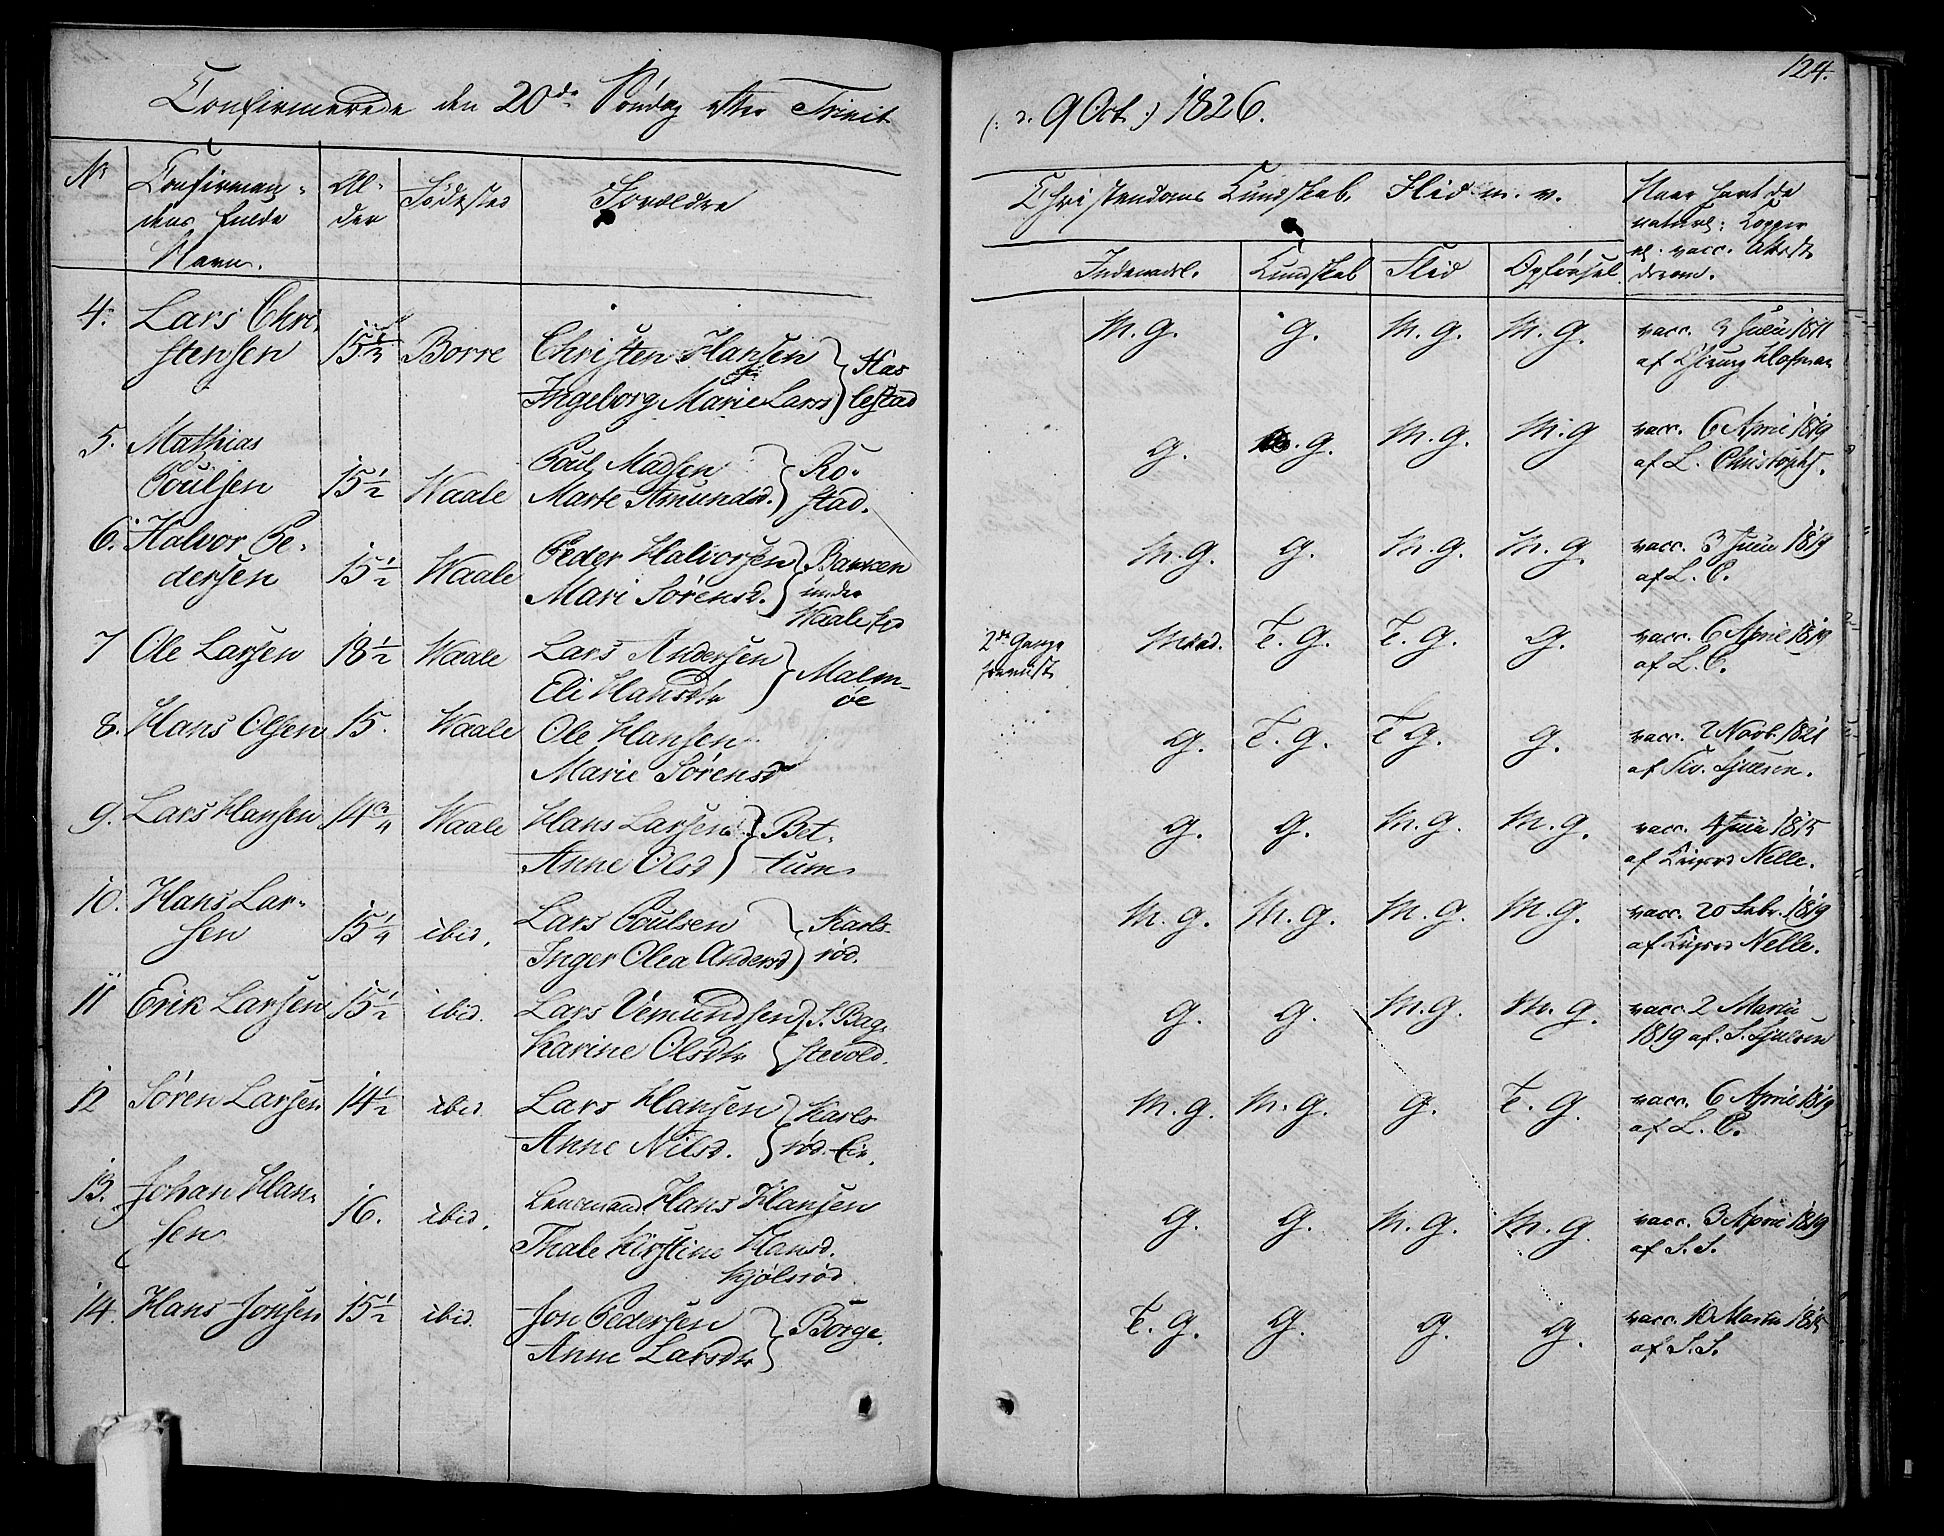 124.
Confirmerede den 20de Søndag efter Trinit. (: d. 9 Oct. :) 1826.
No
Confirman-
dens fulde
Navn.
Al-
der
Födested
Forældre
Christendoms Kundskab, Flid m. v.
Indenadl.
Kundskab
Flid
Opførsel
Naar havt de
naturl: Kopper
el. vacc. Attest
derom.
4. Lars Chri-
stensen 15 Borre Christen Hansen
Ingeborg Marie Larsd Has
lestad
M. g. g. M. g. M. g. vacc. 3 Juni 1811
af Chirurg Hofman
5. Mathias
Poulsen 15½ Waale Poul Madsen
Marte Amundsd. Ro-
stad.
g. M. g. M. g. M. g vacc. 6 April 1819
af L. Christophs.
6. Halvor Pe-
dersen 15½ Waale Peder Halvorsen
Mari Sörensd. Bakken
under
Waale
M. g. g. M. g. M. g. vacc. 3 Juni 1819
af L. C.
7 Ole Larsen 18½ Waale Lars Andersen
Eli Hansdtr Malm-
öe
2de Gange
fremst. Maad. T. g. T. g. g. vacc. 6 April 1819
af L. C.
8. Hans Olsen 15. Waale Ole Hansen
Marie Sörensd
g. T. g. T g. g. vacc. 2 Novb. 1821
af Siv. Sjuesen.
9. Lars Hansen 14¾ Waale Hans Larsen
Anne Olsd Bet-
tum
g. g. M. g. M. g. vacc. 4 Juni 1815
af Nelle.
10. Hans Lar-
sen 15¼ ibid. Lars Poulsen
Inger Olea Andersd Karls-
röd.
M. g. M. g. M. g. M. g. vacc. 20 Febr. 1819
af Nelle.
11 Erik Larsen 15½ ibid. Lars Vemundsen
Karine Olsdtr S. Bag-
stevold.
g. g. M. g. M. g. vacc. 2 Martii
1819 af. S. Sjuesen
12 Sören Larsen 14½ ibid. Lars Hansen
Anne Nilsd. Karls-
röd. Eie.
M. g. M. g. g. T. g. vacc. 6 April 1819
af L. C.
13. Johan Han-
sen 16. ibid. Lensmand Hans Hansen
Thale Kirstine Hansd.
Kjölsröd
g. g. M. g. M. g. vacc. 3 April 1819
af S. S.
14. Hans Jonsen 15½ ibid. Jon Pedersen
Anne Larsdtr Borge.
T. g. g. g. g. vacc. 10 Martii
af S. S.